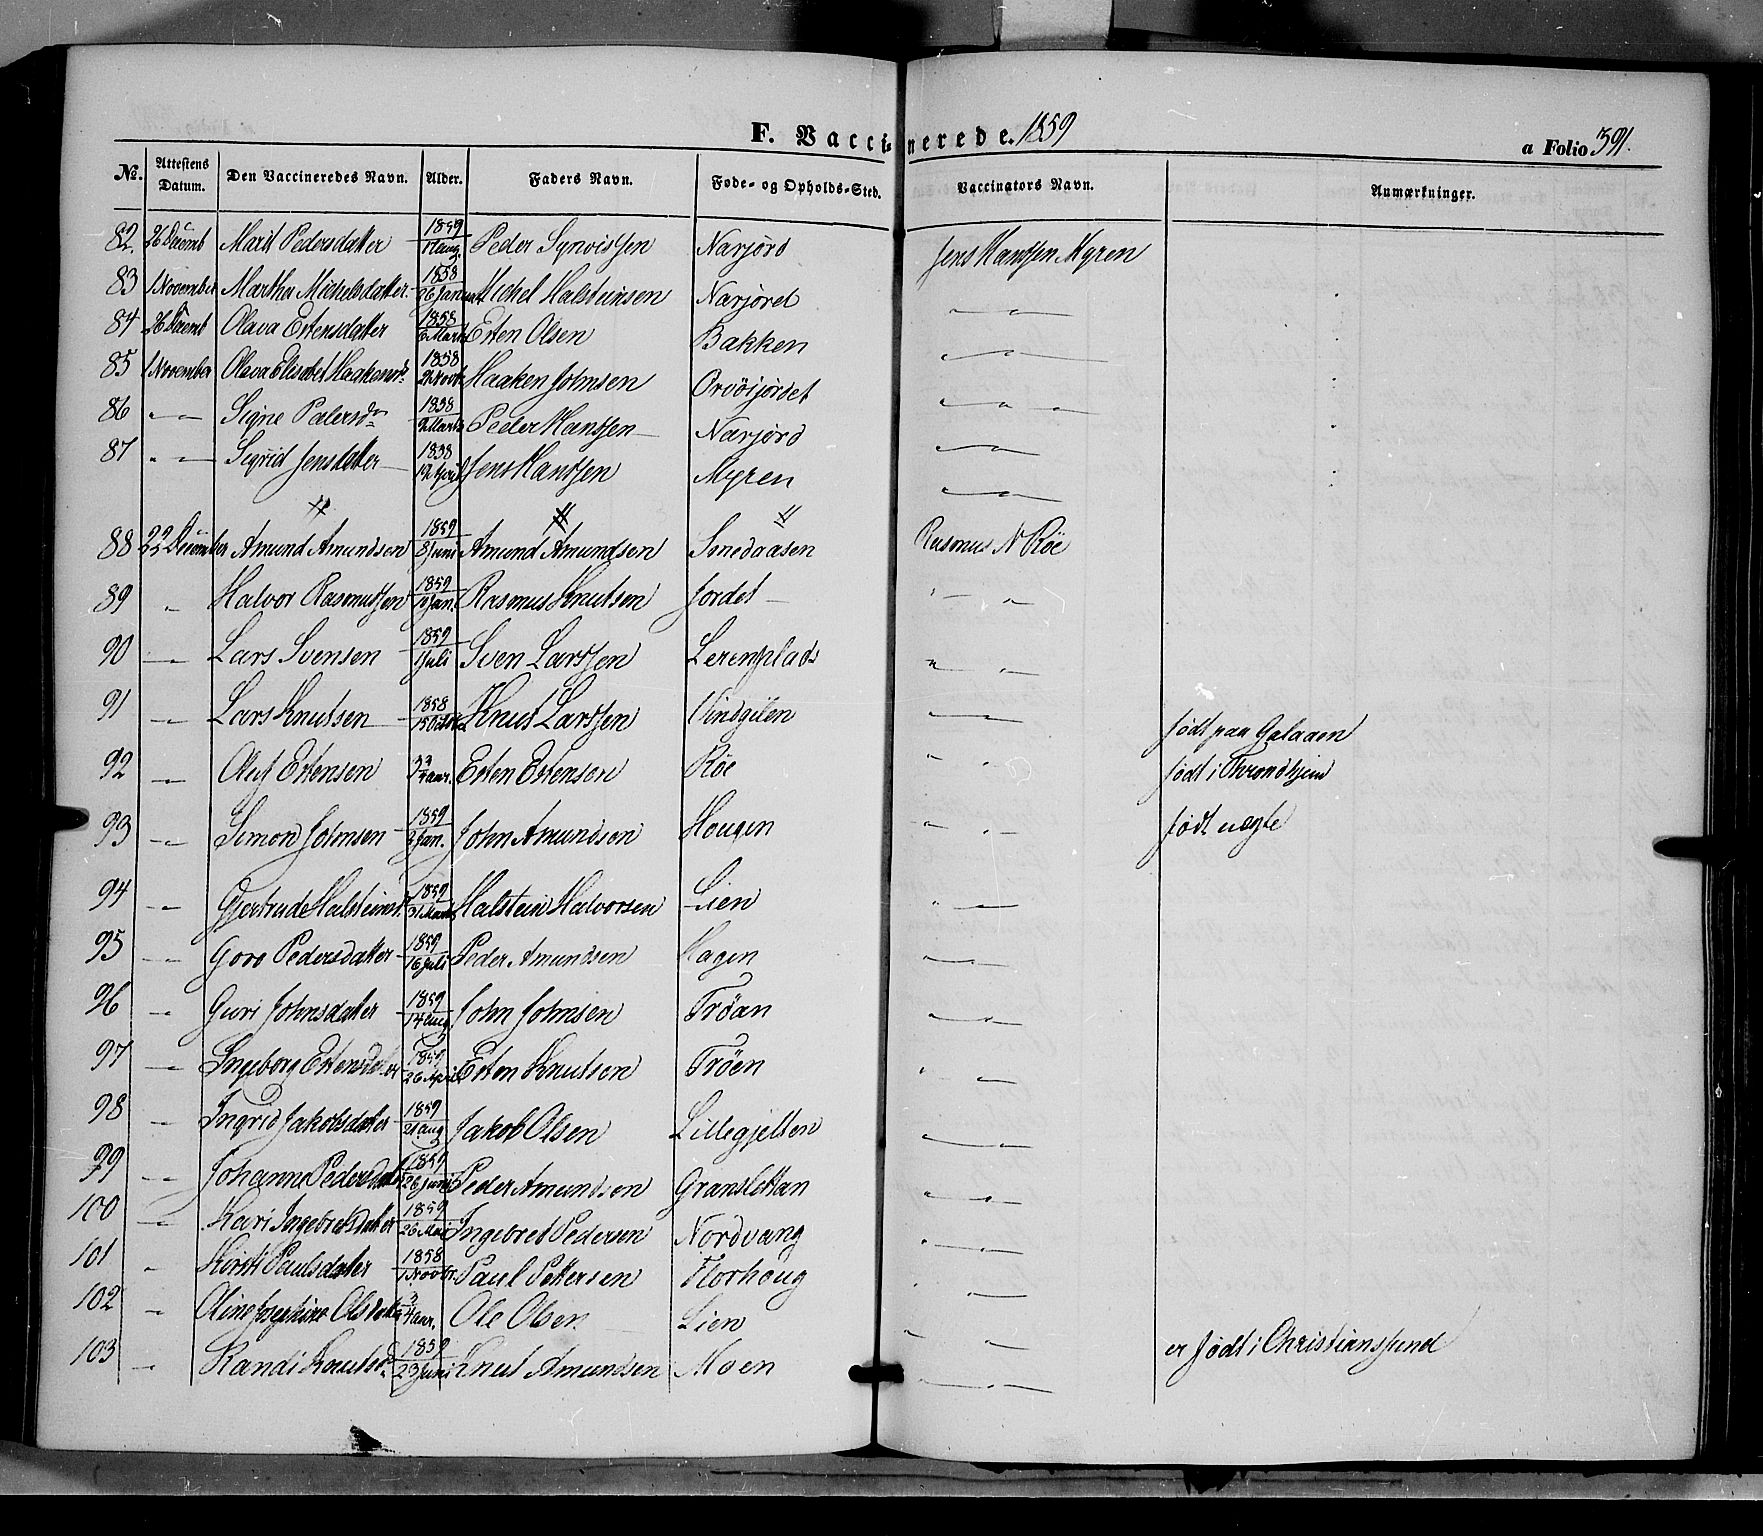 F. Vaccinerede. 1859
a Folio 391.
No. Attestens Datum. Den Vaccineredes Navn. Alder. Faders Navn. Føde- og Opholds-Sted. Vaccinators Navn. Anmærkninger.
82. 26 Decemb Marit Pedersdatter 1859 17 aug. Peder Synvissen Narjord Jens Hanssen Myren
83 1 November Marthe Michelsdatter 1858 26 Januar Michel Halsteinsen Narjoret " "
84 26 Decemb Olava Estensdatter 1858 6 Marts Esten Olsen Bakken " "
85 1 November Olava Elisabet Haakensd. 1858 Novb. Haaken Johnsen Orvöijordet " " "
86 " " Signe Pedersd. 1858 2 Marts Peder Hanssen Narjord " "
87 " " Sigrid Jensdatter 1858 12 April Jens Hanssen Myren " "
88 22 December Amund Amundsen 1859 8 Juni Amund Amundsen Sonedaasen Rasmus N Röe
89 " Halvor Rasmussen 1859 Jan. Rasmus Knutsen Jordet " "
90 " Lars Svensen 1859 1 Juli Sven Larssen Lerenplads " "
91 " Lars Knutsen 1858 15 Octbr Knut Larssen Vindgilen " " født paa Galaaen
92 " Oluf Estensen aar. Esten Estensen Röe " " født i Throndhjem
93 " Simon Johnsen 1859 2 Jan. John Amundsen Hougen " " født uægte
94 " Gjertrude Halsteinsd. 1859 31 Marts Halstein Halvorsen Lien " "
95 " Goro Pedersdatter 1859 16 Juli Peder Amundsen Hagen " "
96 " Guri Johnsdatter 1859 14 aug John Johnsen Tröan " "
97 " Ingeborg Estensdatter 1859 26 April Esten Knutsen Tröen " "
98 " Ingrid Jakobsdatter 1859 21 aug Jakob Olsen Lillegjelten " "
99 " Johanne Pedersdatter 1859 26 Juni Peder Amundsen Granslettan " "
100 " Kari Ingebretsdatter 1859 26 Mai Ingebret Pedersen Nordvang " "
101 " Kirsti Paulsdatter 1858 1 Novbr. Paul Pettersen Florhoug " "
102 " Oline Josephine Olsdatter aar. Ole Olsen Lien " " er født i Christianssund
103 " Randi Knutsd. 1859 23 Juni Knut Amundsen Moen " "